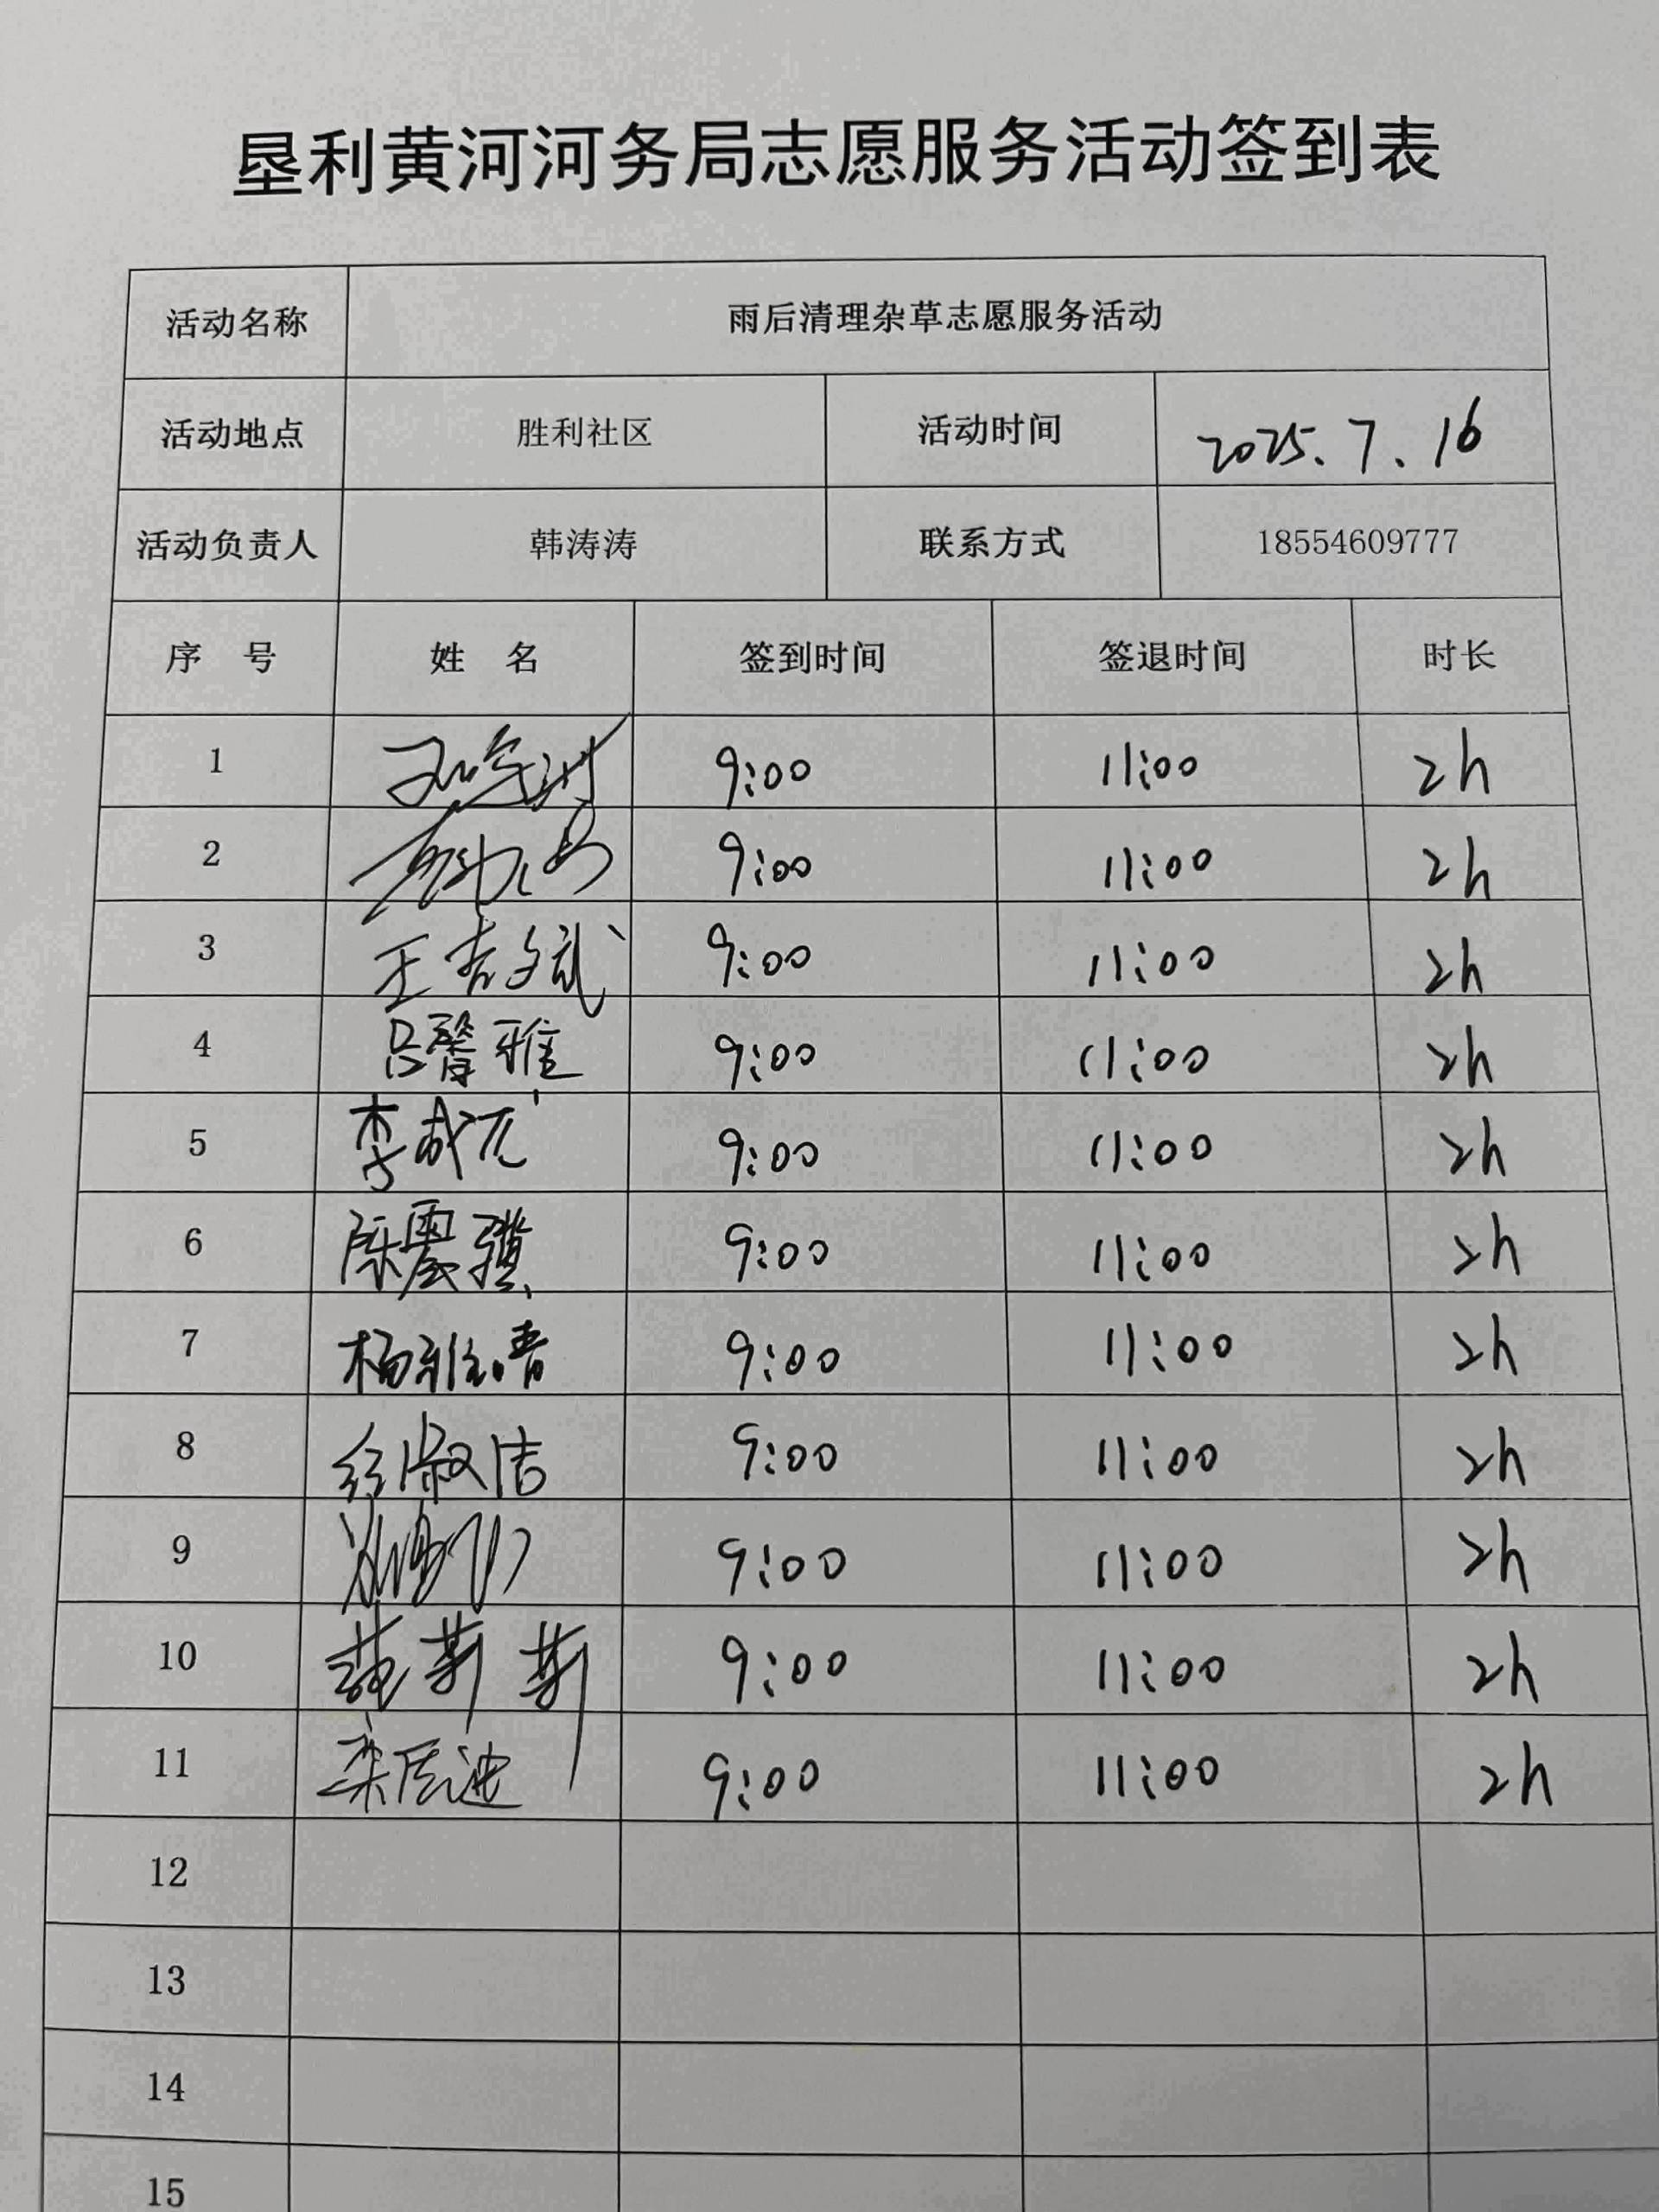 垦利黄河河务局志愿服务活动签到表
活动名称 雨后清理杂草志愿服务活动
活动地点 胜利社区 活动时间 2025.7.16
活动负责人 韩涛涛 联系方式 18554609777
序 号 姓 名 签到时间 签退时间 时长
1 9:00 11:00 2h
2 9:00 11:00 2h
3 王 9:00 11:00 2h
4 吕馨雅 9:00 11:00 2h
5 李成元 9:00 11:00 2h
6 陈震骥 9:00 11:00 2h
7 杨雅晴 9:00 11:00 2h
8 淑洁 9:00 11:00 2h
9 9:00 11:00 2h
10 9:00 11:00 2h
11 9:00 11:00 2h
12
13
14
15